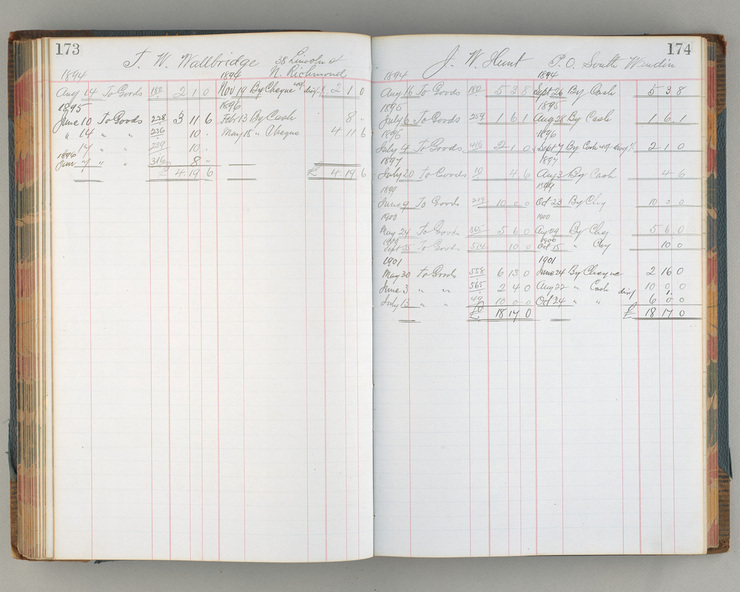 173
T. W. Wallbridge 38 Lincoln St
N. Richmond
1894 1894
Aug 14 To Goods 182 2 1 0 Nov 19 By Cheque 2 1 0
1895 1896
June 10 To Goods 228 3 11 6 Feb 13 By Cash 8 -
" 14 " " 236 10 - May 18 " Cheque 4 11 6
" 17 " " 239 10 -
1896
June 9 " " 316 8 -
£ 4 19 6 £ 4 19 6
174
J. W. Hunt P.O. South Windsor
1894 1894
Aug 16 To Goods 182 5 3 8 Sept 26 By Cash 5 3 8
1895 1895
July 6 To Goods 1 6 1 Aug 28 By Cash 1 6 1
1896 1896
July 4 To Goods 2 1 0 Sept 7 By Cash 2 1 0
1897 1897
July 20 To Goods 4 6 Aug 3 By Cash 4 6
1899 1899
June 9 To Goods 10 0 0 Oct 23 By Chq 10 0 0
1900 1900
May 24 To Goods 5 6 0 Aug 29 By Chq 5 6 0
Sept 25 To Goods 514 10 0 Oct 15 " 10 0
1901 1901
May 30 To Goods 558 6 13 0 June 24 By Cheque 2 16 0
June 3 " " 565 2 4 0 Aug 22 " Cash 10 0 0
July 13 " " 10 0 0 Oct 24 " " 6 0 0
£ 18 17 0 £ 18 17 0